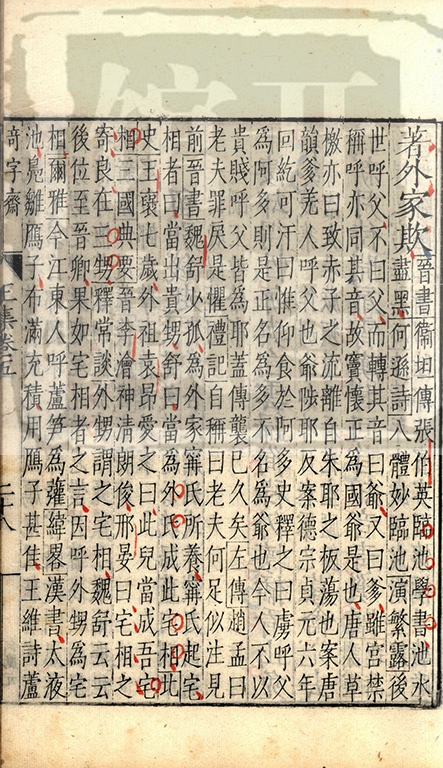 著外家欺 晉書衞坦傳張伯英臨池學書池水
盡黑何遜詩八體妙臨池 演繁露後
世呼父不曰父而轉其音曰爺又曰爹雖宮禁
稱呼亦同其音故竇懷正為國爺是也唐人草
檄亦曰致赤子之流離自朱耶之板蕩也案唐
韻爹羌人呼父也爺陟耶反案德宗貞元六年
回紇可汗曰惟仰食於阿多史釋之曰虜呼父
為阿多則是正名為多不名為爺也今人不以
貴賤呼父皆為耶蓋傳襲巳久矣 左傳趙孟曰
老夫罪戾是懼 禮記自稱曰老夫何足似注見
前 晉書魏舒少孤為外家甯氏所養甯氏起宅
相者曰當出貴甥舒曰當為外氏成此宅相 北
史王襃七歲外祖袁昂愛之曰此兒當成吾宅
相 三國典要晉李澮神清朗俊邢晏曰宅相之
寄良在三甥 釋常談外甥謂之宅相魏舒云云
後位至晉卿果如宅相者之言因呼外甥為宅
相 爾雅今江東人呼蘆笋為虇 緯畧漢書太液
池鳧雛鴈子布滿充積用鴈子甚佳王維詩蘆
奇字齋 卷五 二十八